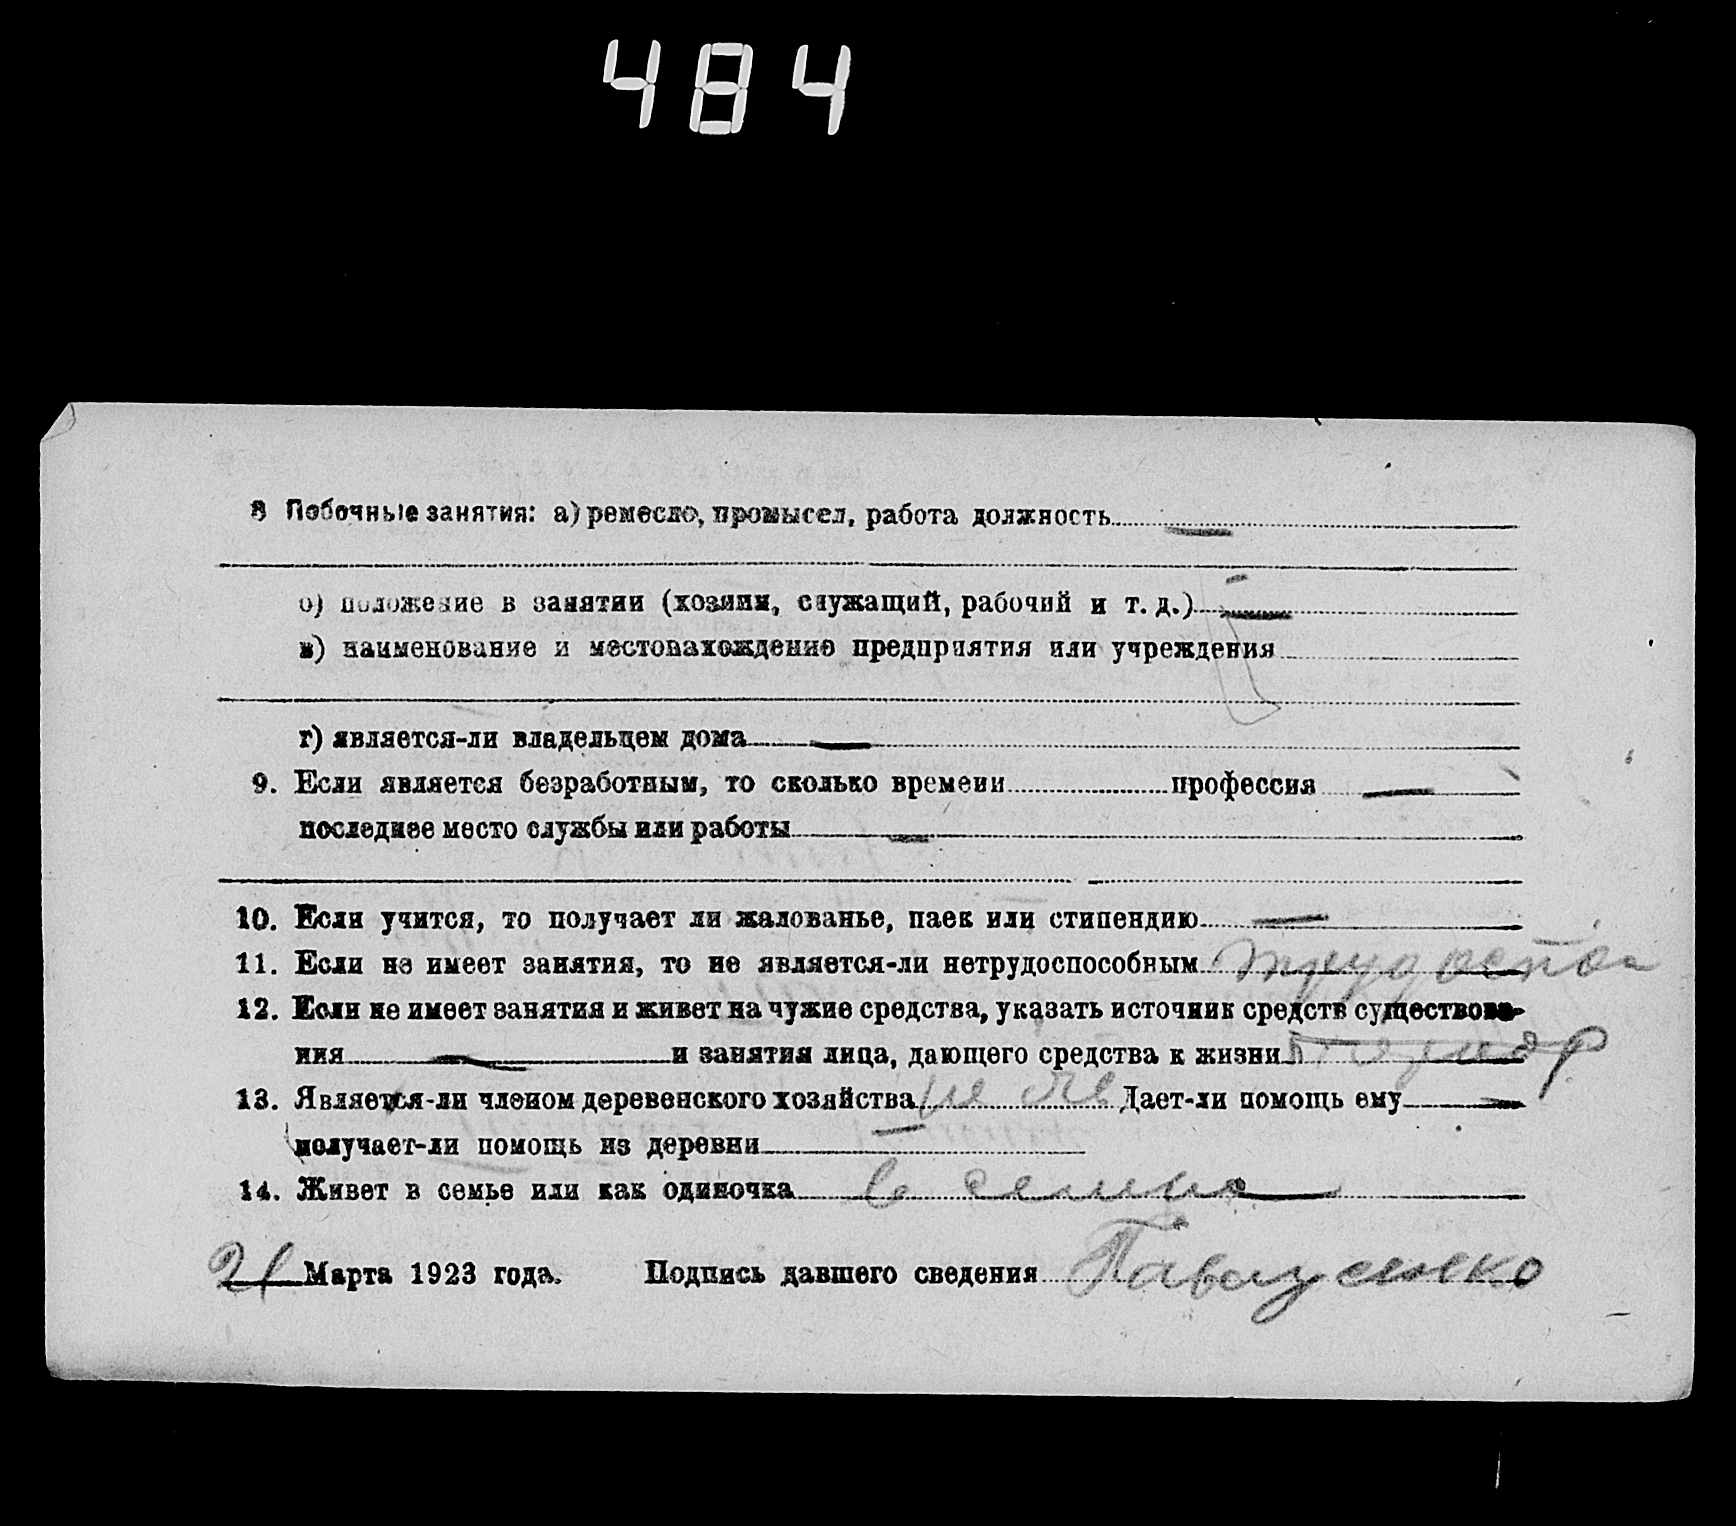 484
8 Побочные занятия: а) ремесло, промысел, работа должность —
б) положение в занятии (хозяин, служащий, рабочий и т. д.) —
в) наименование и местонахождение предприятия или учреждения
г) является-ли владельцем дома —
9. Если является безработным, то сколько времени профессия —
последнее место службы или работы —
10. Если учится, то получает ли жалованье, паек или стипендию —
11. Если не имеет занятия, то не является-ли нетрудоспособным
12. Если не имеет занятия и живет на чужие средства, указать источник средств существова-
ния — и занятия лица, дающего средства к жизни
13. Является-ли членом деревенского хозяйства не Дает-ли помощь ему —
получает-ли помощь из деревни —
14. Живет в семье или как одиночка в семье
21 Марта 1923 года. Подпись давшего сведения Павлусенко